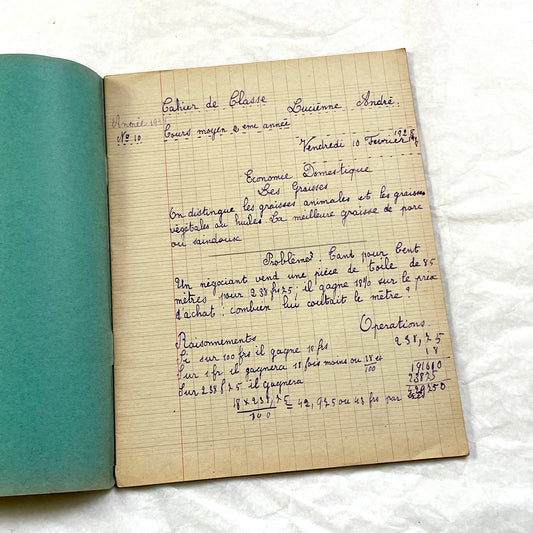 Cahier de Classe Lucienne André.
Année 19
No 10 Cours moyen 2 eme année
Vendredi 10 Février 1928
Economie Domestique
Les Graisses
On distingue les graisses animales et les graisses
végétales ou huiles. La meilleure graisse de porc
ou saindoux
Problème. Tant pour Cent
Un négociant vend une pièce de toile de 85
mètres pour 238 frs 75; il gagne 18% sur le prix
d'achat. combien lui coutait le mètre?
Raisonnements Operations.
Si sur 100 frs il gagne 18 frs 238,75
Sur 1 fr il gagnera 18 fois moins ou 18 et 18
100
Sur 238 f 75 il gagnera 23875
18 × 238,75 = 42,975 ou 43 frs par
100